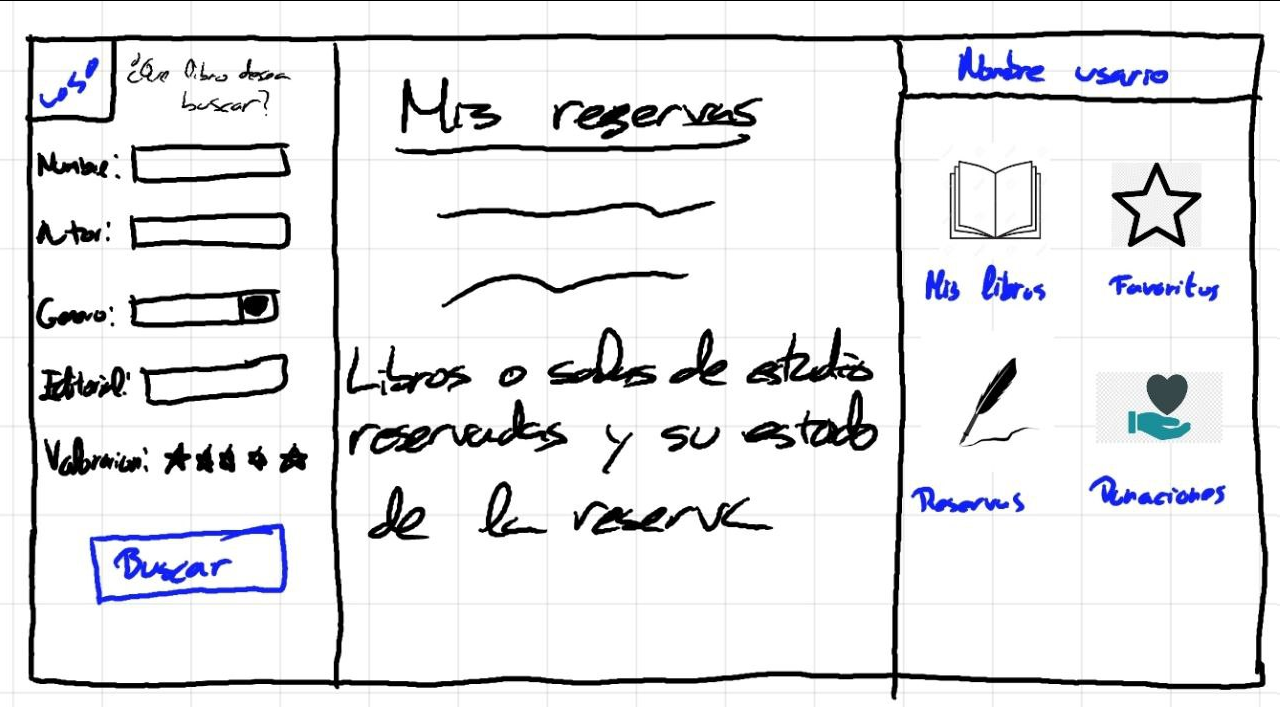 Logo
¿Que libro desea
buscar?
Nombre:
Autor:
Genero:
Editorial:
Valoracion:
Buscar
Mis reservas
Libros o salas de estudio
reservadas y su estado
de la reserva
Nombre usario
Mis libros
Favoritos
Reservas
Donaciones